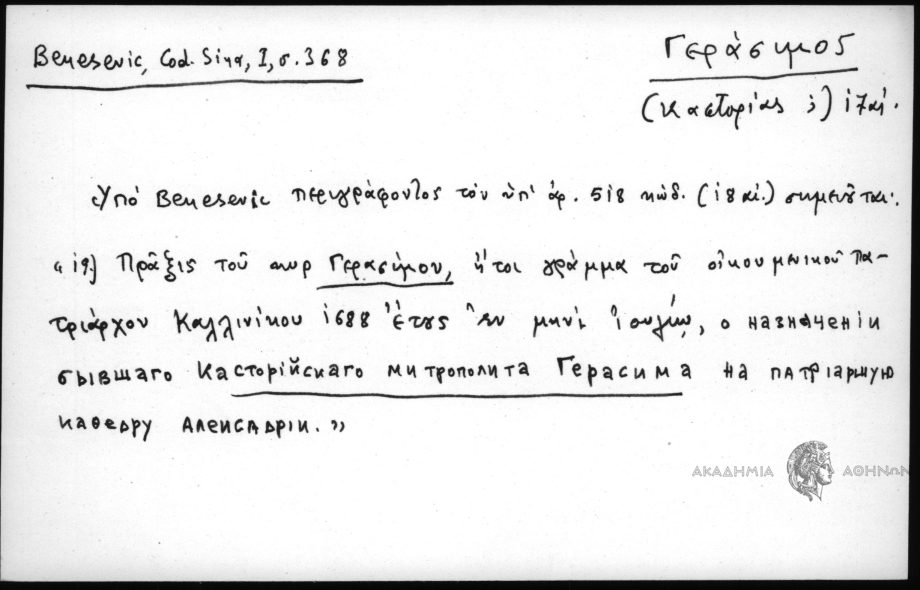 Benesevic, Cod. Sina, I, σ. 368
Γεράσιμος
(Καστορίας ;) ι7αί.
Ὑπό Benesevic περιγράφοντος τόν ὑπ' ἀρ. 518 κώδ. (ι8 αἰ.) σημειοῦται:
« 19) Πρᾶξις τοῦ κυρ Γερασίμου, ἤτοι γράμμα τοῦ οἰκουμενικοῦ Πα-
τριάρχου Καλλινίκου 1688 ἔτους ἐν μηνί Ἰουλίῳ, о назначенiи
бывшаго Касторiйскаго митрополита Герасима на патрiаршую
каθедру Алексадрiи. »
ΑΚΑΔΗΜΙΑ ΑΘΗΝΩΝ